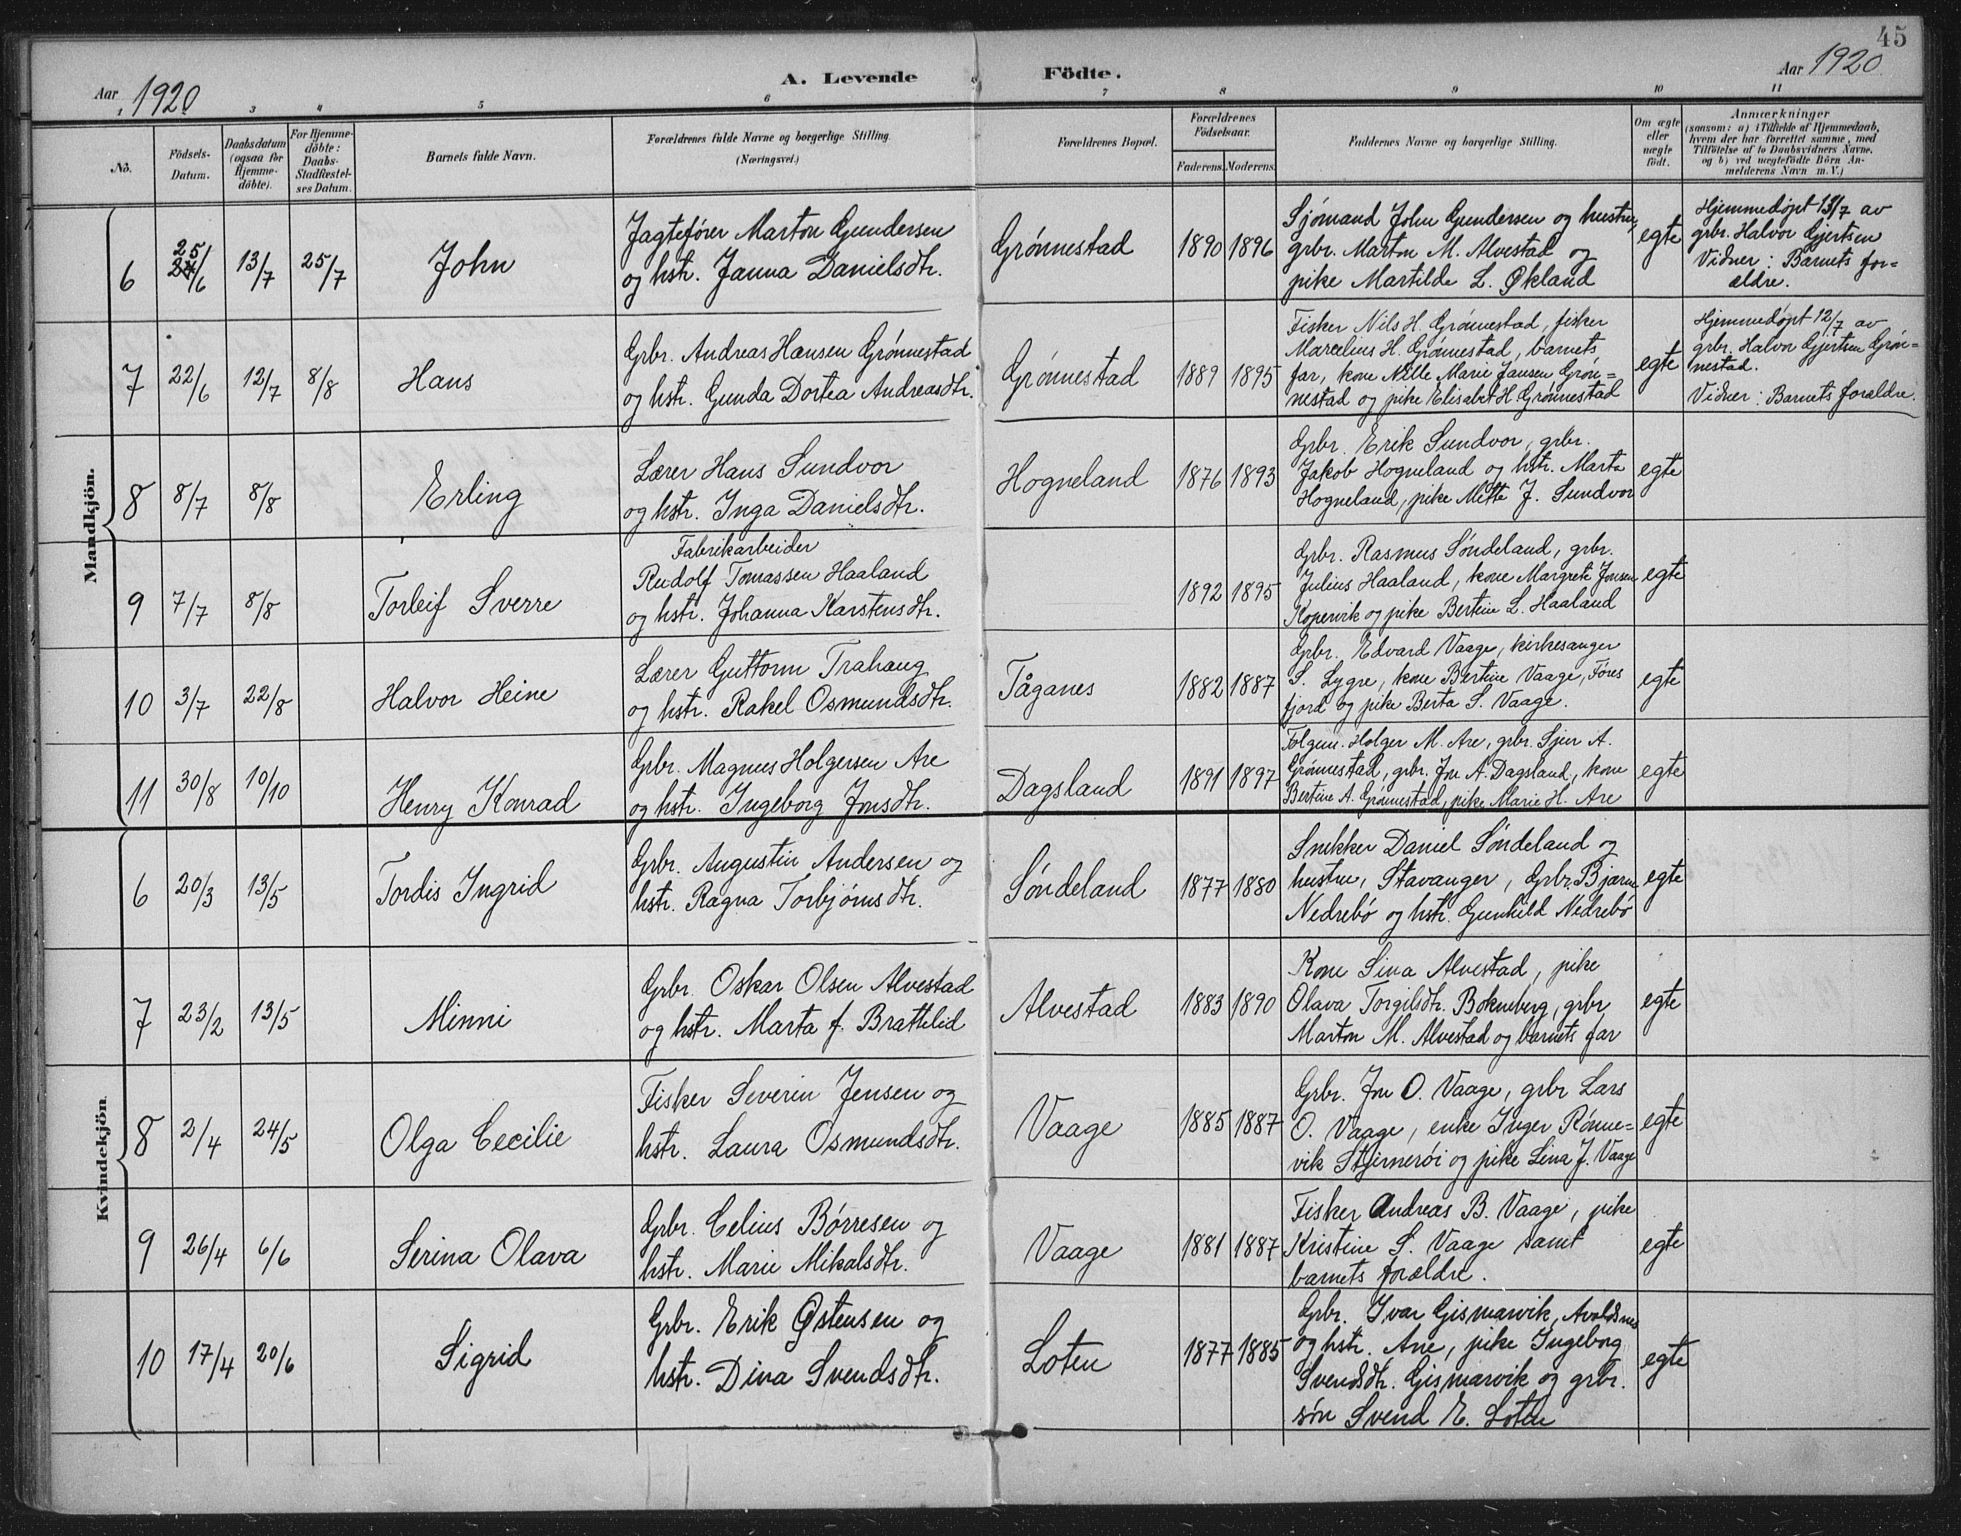 45
Aar 1920
A. Levende Födte.
Aar 1920
3 4 5 6 7 8 9 10 11
No.
Födsels-
Datum.
Daabsdatum
(ogsaa for
Hjemme-
döbte).
For Hjemme-
döbte:
Daabs-
Stadfæstel-
ses Datum.
Barnets fulde Navn.
Forældrenes fulde Navne og borgerlige Stilling.
(Næringsvei.)
Forældrenes Bopæl.
Forældrenes
Födselsaar.
Faderens. Moderens.
Faddernes Navne og borgerlige Stilling.
Om ægte
eller
uægte
födt.
Anmærkninger
(saasom: a) i Tilfælde af Hjemmedaab,
hvem der har forrettet samme, med
Tilföielse af to Daabsvidners Navne,
og b) ved uægtefödte Börn An-
melderens Navn m. V.)
Mandkjön.
6
25
24/6
13/7
25/7
John
Jagtefører Marton Gundersen
og hstr. Janna Danielsdtr.
Grønnestad
1890 1896
Sjømand John Gundersen og hustru,
grbr. Marton M. Alvestad og
pike Martilde L. Økland
egte
Hjemmedøpt 13/7 av
grbr. Halvor Gjertsen
Vidner: Barnets for-
ældre.
7
22/6
12/7
8/8
Hans
Grbr. Andreas Hansen Grønnestad
og hstr. Gunda Dortea Andreasdtr.
Grønnestad
1889 1895
Fisker Nils H. Grønnestad, fisker
Marcelius H. Grønnestad, barnets
far, kone Nille Marie Jansen Grøn-
nestad og pike Elisabet H. Grønnestad
egte
Hjemmedøpt 12/7 av
grbr. Halvor Gjertsen Grøn-
nestad.
Vidner: Barnets forældre.
8
8/7
8/8
Erling
Lærer Hans Sundvor
og hstr. Inga Danielsdtr.
Hogneland
1876 1893
Grbr. Erik Sundvor, grbr.
Jakob Hogneland og hstr. Marta
Hogneland, pike Mette J. Sundvor
egte
9
7/7
8/8
Torleif Sverre
Fabrikarbeider
Rudolf Tomassen Haaland
og hstr. Johanna Karstensdtr.
1892 1895
Grbr. Rasmus Søndeland, grbr.
Julius Haaland, kone Margrete Jonsen
Kopervik og pike Bertine L. Haaland
egte
10
3/7
22/8
Halvor Heine
Lærer Guttorm Trahaug
og hstr. Rakel Osmundsdtr.
Tåganes
1882 1887
Grbr. Edvard Vaage, kirkesanger
S. Lygre, kone Bertine Vaage, Føres
fjord og pike Berta S. Vaage.
egte
11
30/8
10/10
Henry Konrad
Grbr. Magnus Holgersen Are
og hstr. Ingeborg Jonsdtr.
Dagsland
1891 1897
Folgem. Holger M. Are, grbr. Sjur A.
Grønnestad, grbr. Jon A. Dagsland, kone
Bertine A. Grønnestad, pike Marie H. Are
egte
Kvindekjön.
6
20/3
13/5
Tordis Ingrid
Grbr. Augustin Andersen og
hstr. Ragna Torbjørnsdtr.
Søndeland
1877 1880
Snekker Daniel Søndeland og
hustru, Stavanger, Grbr. Bjarne
Nedrebø og hstr. Gunhild Nedrebø
egte
7
23/2
13/5
Minni
Grbr. Oskar Olsen Alvestad
og hstr. Marta f. Brattelid
Alvestad
1883 1890
Kone Sina Alvestad, pike
Olava Torgilsdtr. Bokneberg, grbr
Marton M. Alvestad og barnets far
egte
8
2/4
24/5
Olga Cecilie
Fisker Severin Jensen og
hstr. Laura Osmundsdtr.
Vaage
1885 1887
Grbr. Jon O. Vaage, grbr Lars
O. Vaage, enke Inger Rønne-
vik Stjernerøi og pike Lina J. Vaage
egte
9
26/4
6/6
Serina Olava
Grbr. Celius Børresen og
hstr. Marie Mikalsdtr.
Vaage
1881 1887
Fisker Andreas B. Vaage, pike
Kristine S. Vaage samt
barnets forældre.
egte
10
17/4
20/6
Sigrid
Grbr. Erik Østensen og
hstr. Dina Svendsdtr.
Loten
1877 1885
Grbr. Ivar Gismarvik, Avaldsnes
og hstr. Ane, pike Ingeborg
Svendsdtr. Gismarvik og grbr.
søn Svend E. Loten
egte